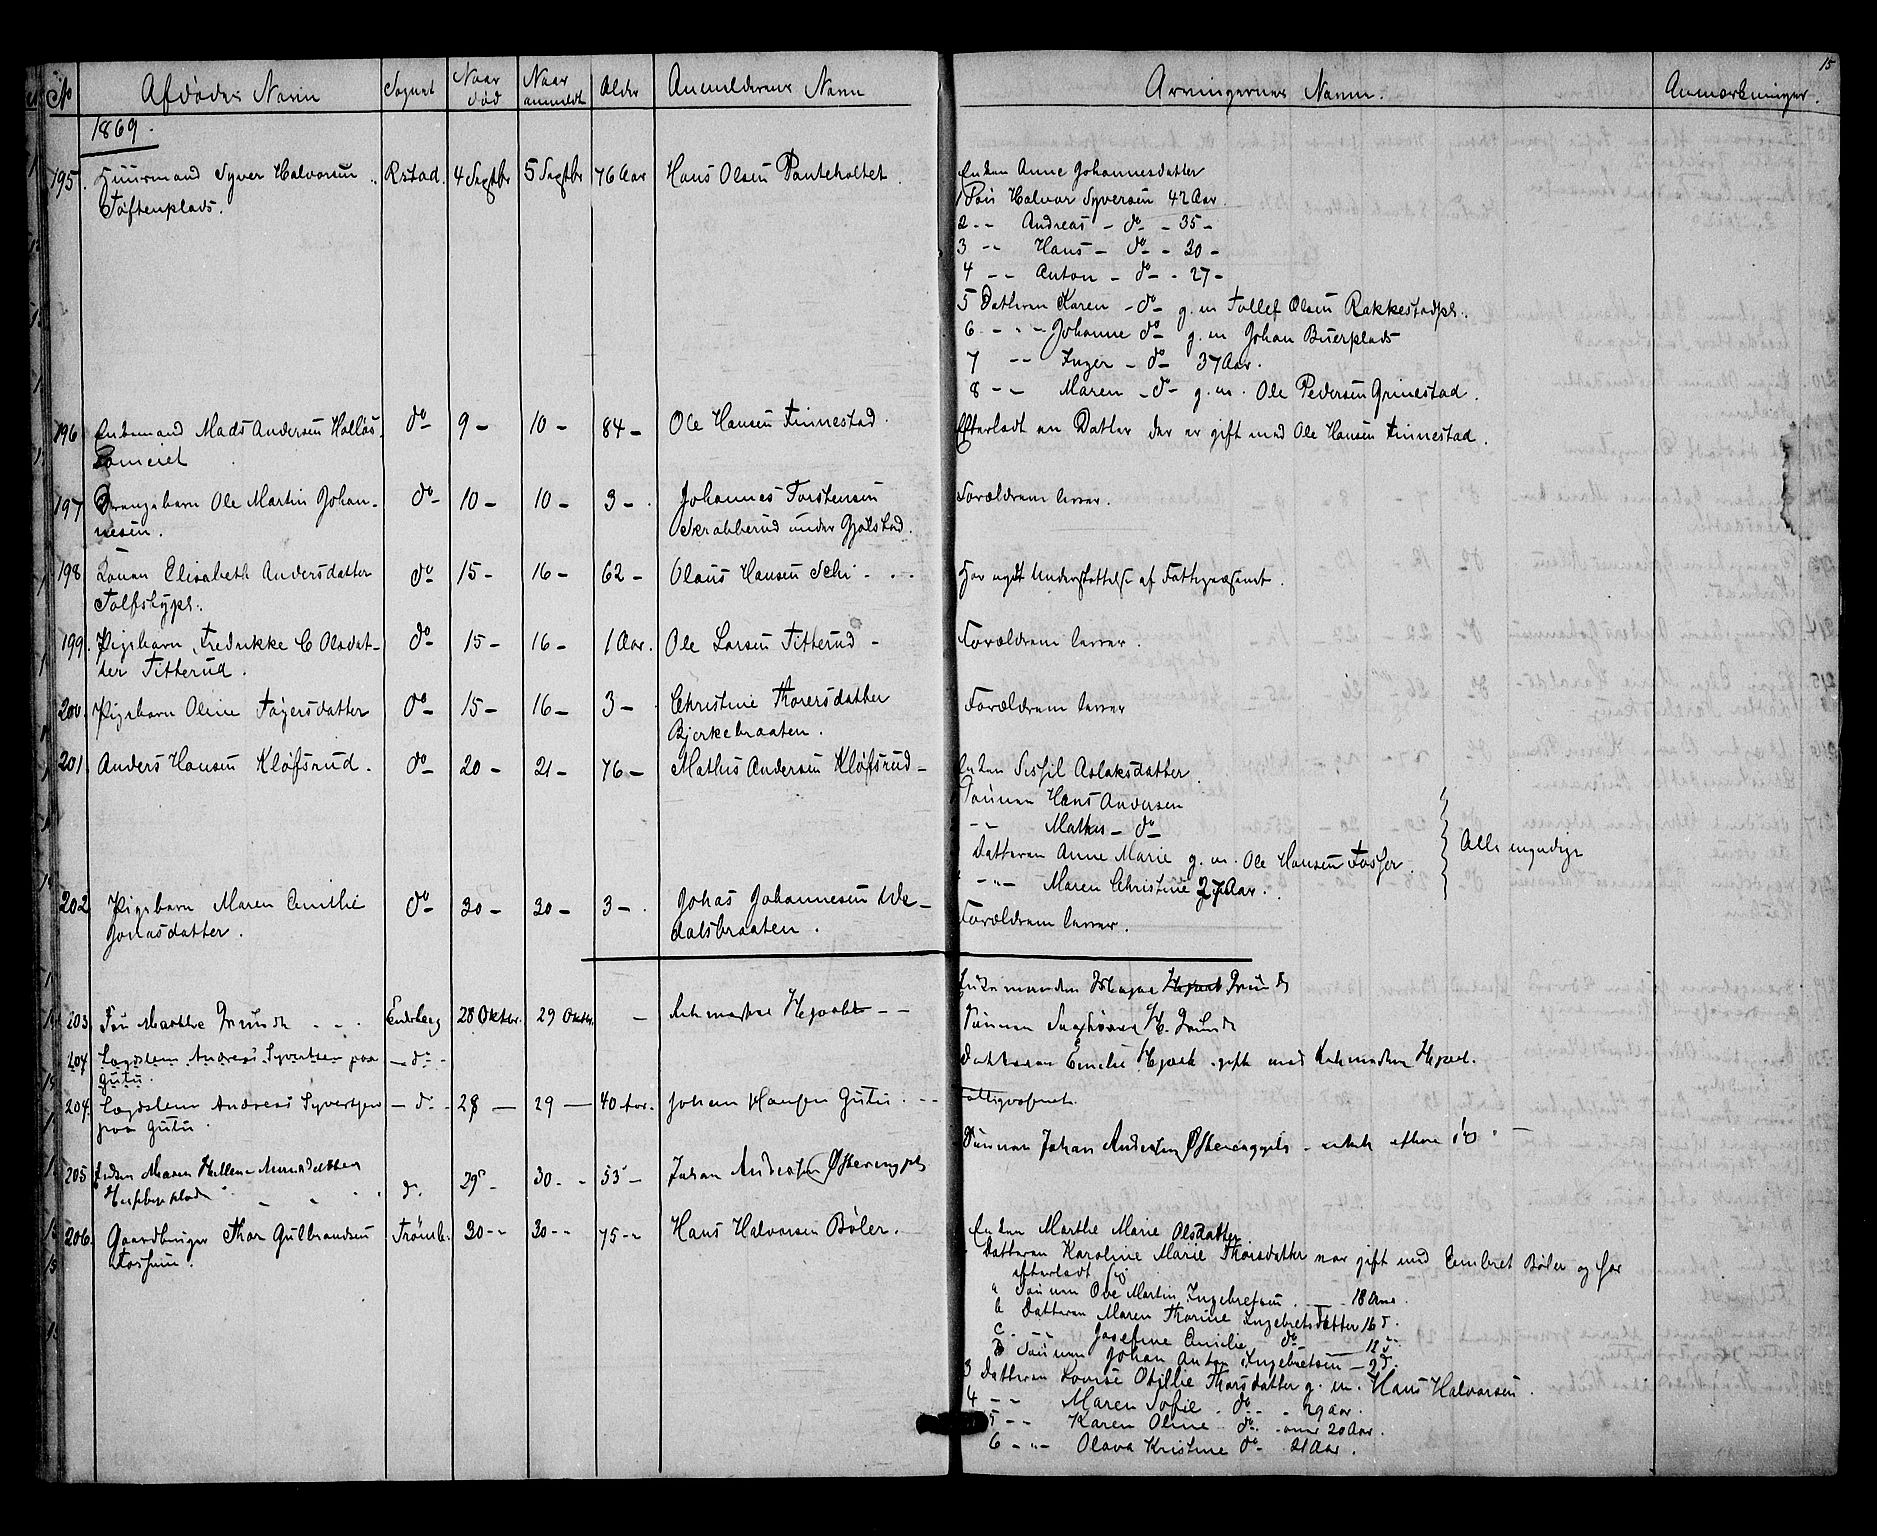 15
No Afdødes Navn Sognet Naar død Naar anmeldt Alder Anmelderens Navn Arvingernes Navn. Anmærkninger.
1869.
195. Huusmand Syver Halvorsen Rstad. 4 Septbr 5 Septbr 76 Aar Hans Olsen Enken Anne Johannesdatter
Toftenplads. 1 Søn Halvor Syversen 42 Aar.
2 -"- Andreas - do - 35 -
3 -"- Hans - do - 30 -
4 -"- Anton - do - 27 -
5 Datteren Karen - do - g. m Tollef Olsen Rakkestadpl.
6 -"- Johanne do g. m Johan Buerplads
7 -"- Inger - do 37 Aar.
8 -"- Maren - do - g. m. Ole Pedersen Grinestad.
196 Enkemand Mads Andersen do 9 - 10 - 84 - Ole Hansen Finnestad. Efterladt en Datter der er gift med Ole Hansen Finnestad.
197 Drengebarn Ole Martin Johan- do 10 - 10 - 3 - Johannes Torstensen Forældrene lever.
nesen. Skrabberud under Gjølstad.
198 Konen Elisabeth Andersdatter do 15 - 16 - 62 - Olaus Hansen Har nydt Understøttelse af Fattigvæsenet.
199. Pigebarn Fredrikke C Olsdat- do 15 - 16 - 1 Aar. Ole Larsen Titterud - Forældrene lever.
ter Titterud.
200. Pigebarn Oline do 15 - 16 - 3 - Christine Thoresdatter Forældrene lever
Bjerkebraaten.
201. Anders Hansen Kløfsrud. do 20 - 21 - 76 - Mathis Andersen Kløfsrud - Enken Aslaksdatter
Sønnen Hans Andersen
-"- Mathis - do
Datteren Anne Marie g. m. Ole Hansen Fosser. Alle myndige
-"- Maren Christine 27 Aar.
202 Pigebarn Maren Emilie do 30 - 30 - 3 - Johannesen Forældrene lever.
Jonasdatter. dalsbraaten.
Enkemanden
203. Marthe 28 Oktbr. 29 Oktbr. - Sønnen H.
204 Lægdslem Andreas Syvertsen paa - do - Datteren Emilie gift med
Gutu.
204. Lægdslem Andreas Syvertsen - do - 28 - 29 - 40 Aar. Johan Hansen Gutu. Fattigvæsenet.
paa Gutu.
205 Enken Maren do 29 - 30 - 53 - Johan Andersen Sønnen Johan Andersen
206. Gaardbruger Thor Gulbrandsen Trömb. 30 - 30 - 75 - Hans Halvorsen Bøler. Enken Marthe Marie Olsdatter
Datteren Karoline Marie Thorsdatter var gift med Embret Bøler og har
efterladt sig
a Sønnen Ole Martin Ingebretsen 18 Aar.
b Datteren Maren Thorine Ingebretsdatter 16 -
c. -"- Josefine Emilie do 12 -
D Sønnen Johan Anton Ingebretsen - 9 -
3 Datteren Lovise Otillie Thorsdatter g. m. Hans Halvorsen.
4 -"- Maren Sofie do - 29 Aar.
5 -"- Karen Oline - do - over 20 Aar.
6 -"- Olava Kristine do - 21 Aar.